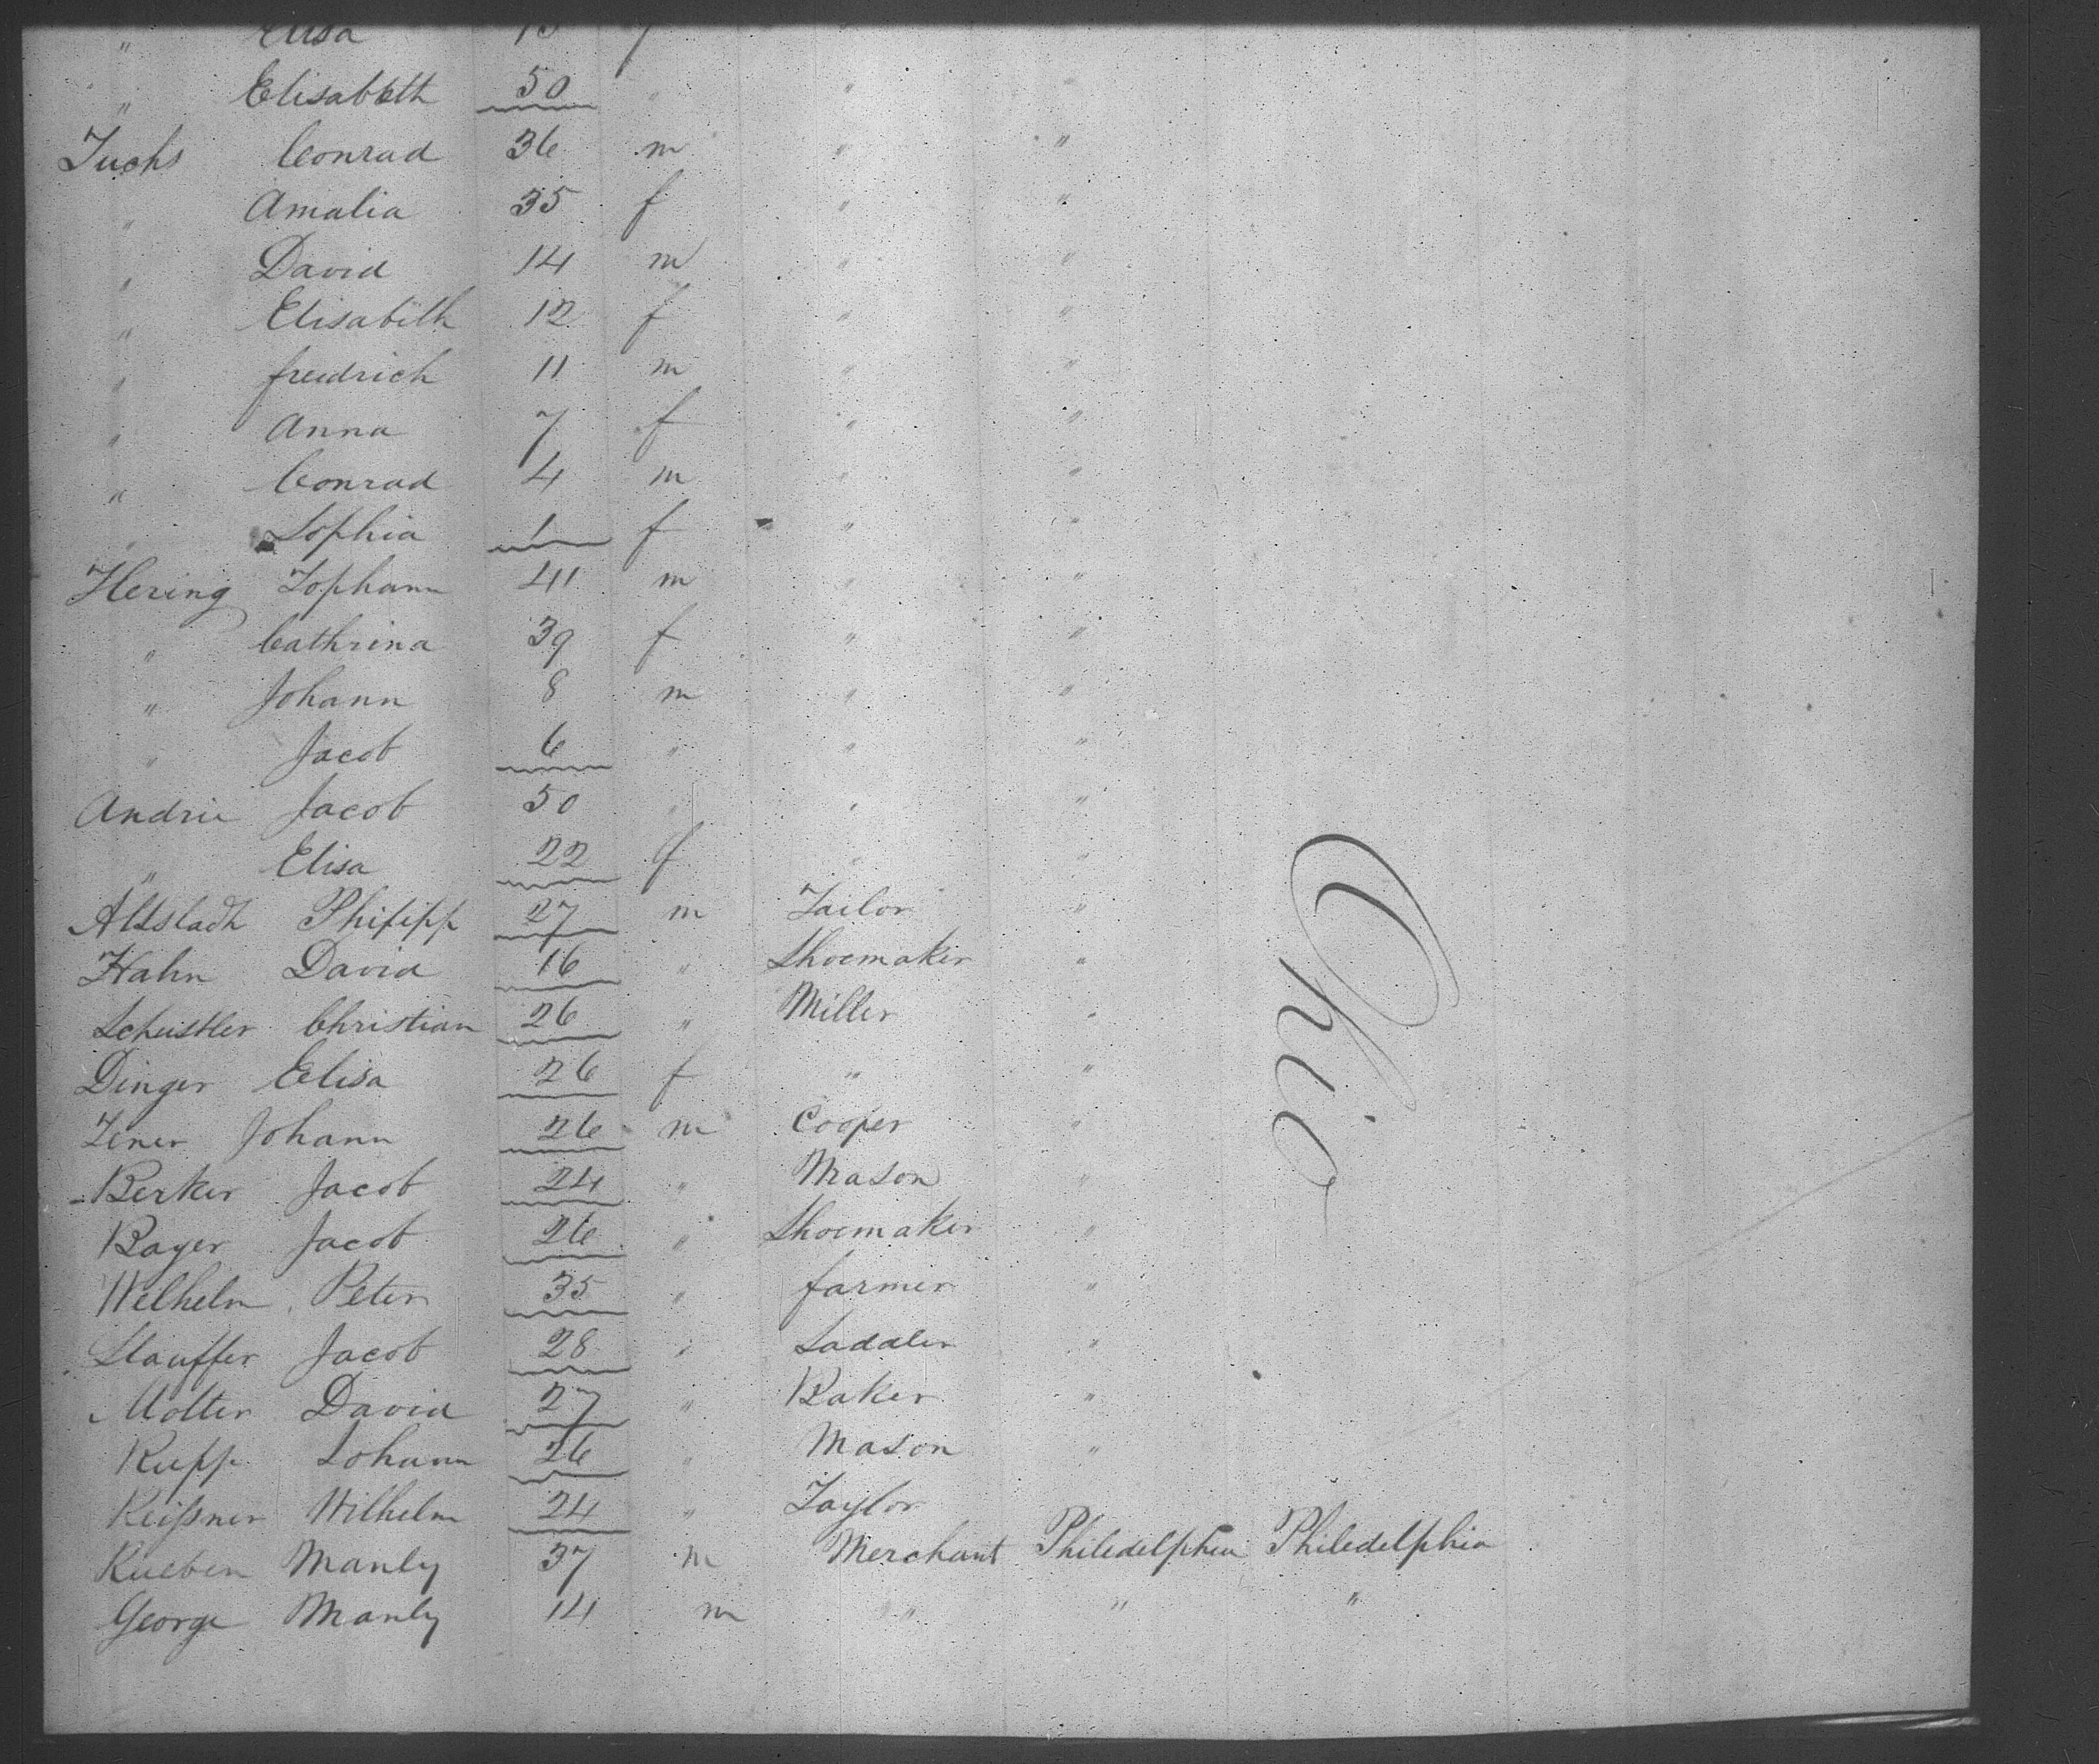 " Elisa 13 f
" Elisabeth 50 " " "
Fuchs Conrad 36 m " "
" Amalia 35 f " "
" David 14 m " "
" Elisabeth 12 f " "
" freidrich 11 m " "
" Anna 7 f " "
" Conrad 4 m " "
" Sophia 1 f " "
Hering Johann 41 m " "
" Cathrina 39 f " "
" Johann 8 m " "
" Jacob 6 " " "
Andrie Jacob 50 " " "
" Elisa 22 f " "
Altstadt Philipp 27 m Tailor "
Hahn David 16 " Shoemaker "
Scheistler Christian 26 " Miller "
Dinger Elisa 26 f " "
Johann 26 m Cooper "
Berker Jacob 24 " Mason "
Bayer Jacob 26 " Shoemaker "
Welhelm Peter 35 " farmer "
Stauffer Jacob 28 " Saddler "
Molter David 27 " Baker "
Rupp Johann 26 " Mason "
Reißner Wilhelm 24 " Taylor
Rueben Manly 37 m Merchant Philedelphia Philedelphia
George Manly 14 m " " "
Ohio